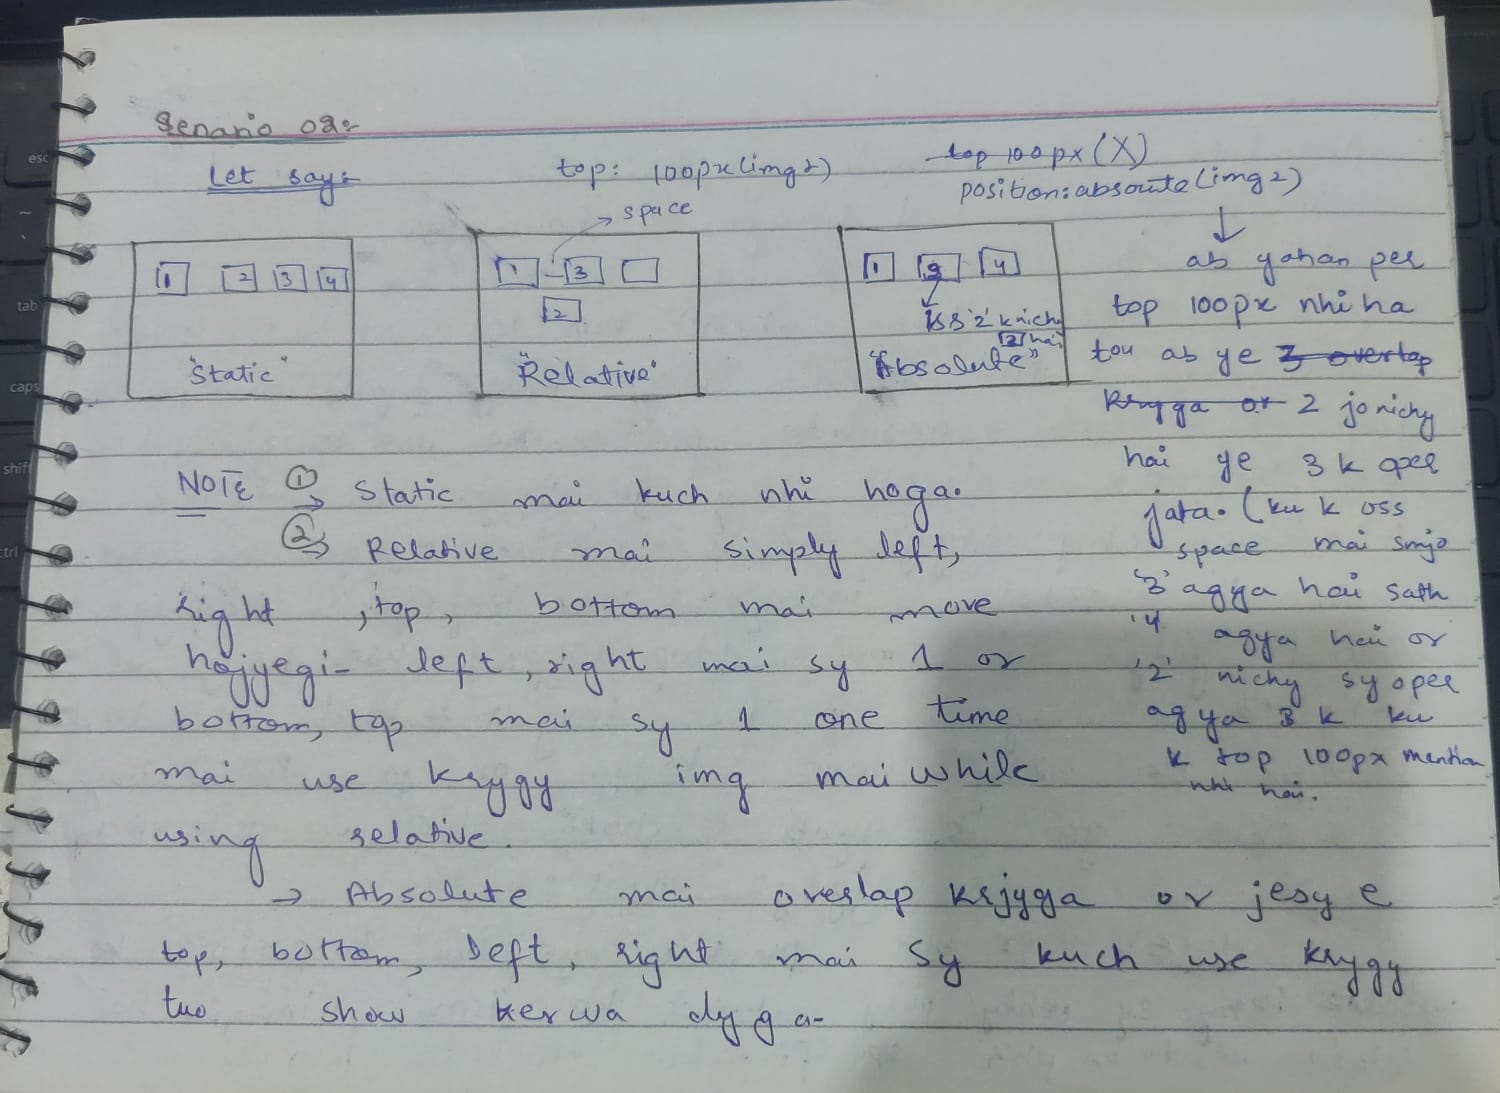 Senario 02:-
Let say:-
top: 100px (img 2)
top 100px (X)
position: absolute (img 2)
space
1 2 3 4
"Static"
1 3
2
"Relative"
1 3 4
'2' k nichy
2 hai
"Absolute"
ab yahan per
top 100px nhi ha
tou ab ye 3 overlap
krygga or 2 jo nichy
hai ye 3 k oper
jata. (ku k oss
space mai smjo
'3' agya hai sath
'4' agya hai or
'2' nichy sy oper
agya 3 k ku
k top 100px mention
nhi hai.
NOTE ① → Static mai kuch nhi hoga.
② → Relative mai simply left,
right, top, bottom mai move
hojyegi- left, right mai sy 1 or
bottom, top mai sy 1 one time
mai use krygy img mai while
using relative.
→ Absolute mai overlap krjyga or jesy e
top, bottom, left, right mai sy kuch use krygy
tuo show kerwa dyga-